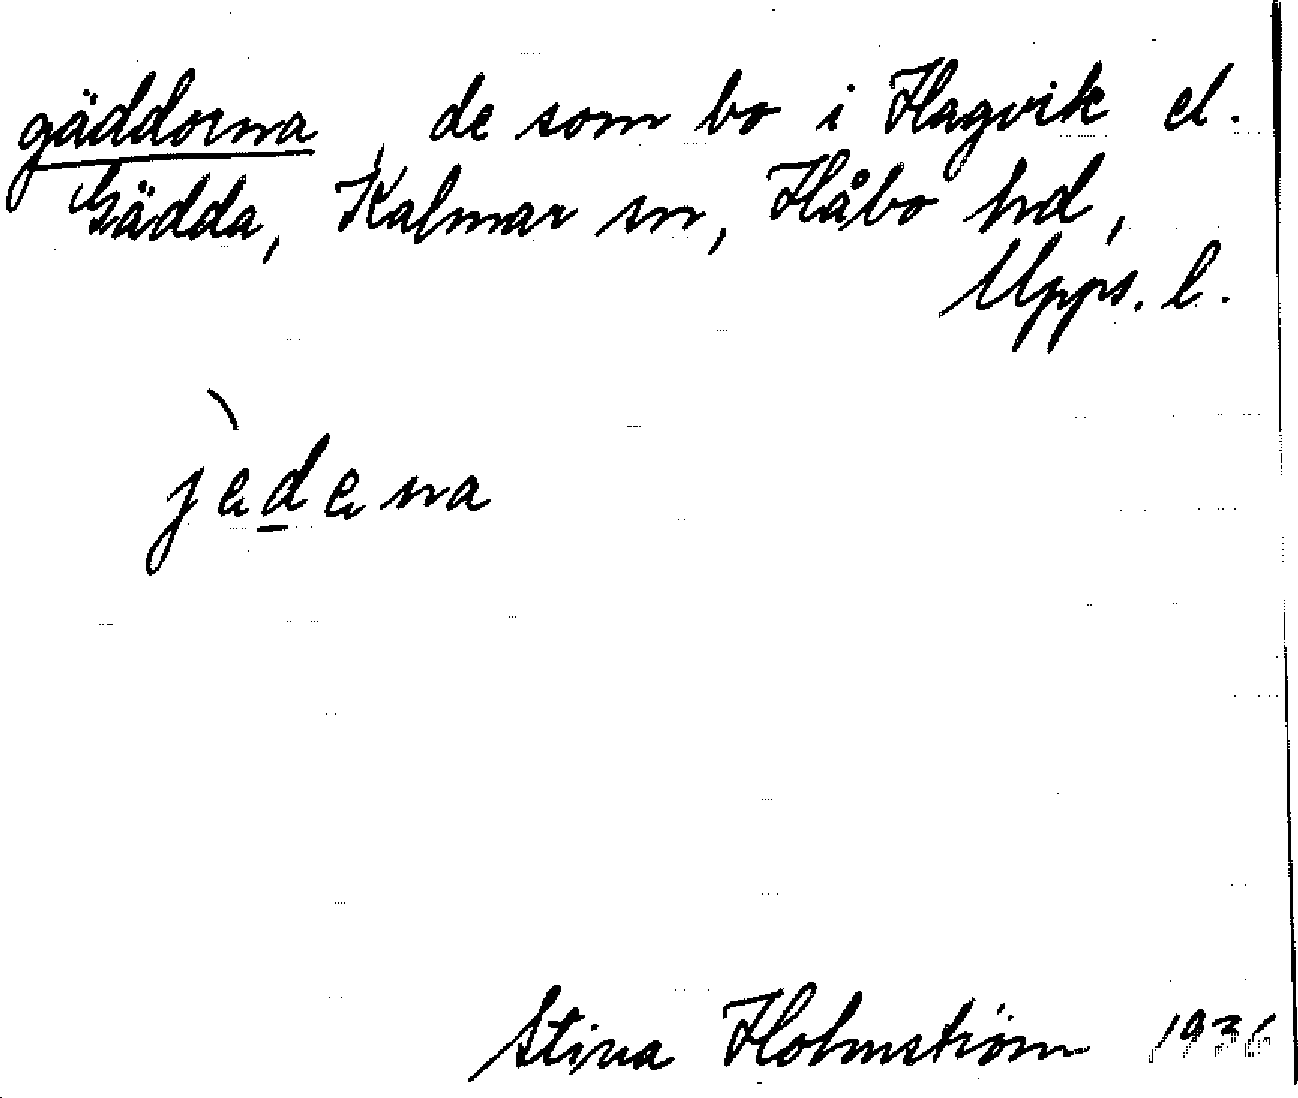 gäddorna, de som bo i Hagvik el.
Gädda, Kalmar sn, Håbo hd,
Upps. l.
jedena
Stina Holmström 1936